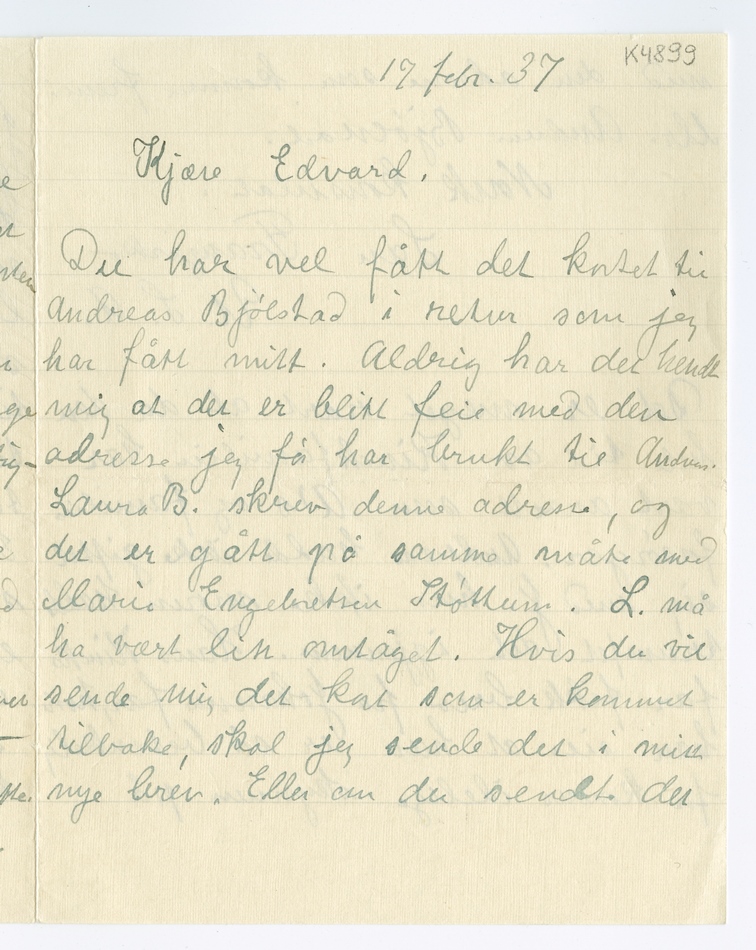 K4899
17 febr. 37
Kjære Edvard.
Du har vel fått det kortet til
Andreas Bjølstad i retur som jeg
har fått mitt. Aldrig har det hendt
mig at det er blitt feil med den
adresse jeg få har brukt til Andreas.
Laura B. skrev denne adresse, og
det er gått på samme måte med
Marie Engebretsen Støttum. L. må
ha vært litt omtåget. Hvis du vil
sende mig det kort som er kommet
tilbake, skal jeg sende det i mitt
nye brev. Eller om du sendte det